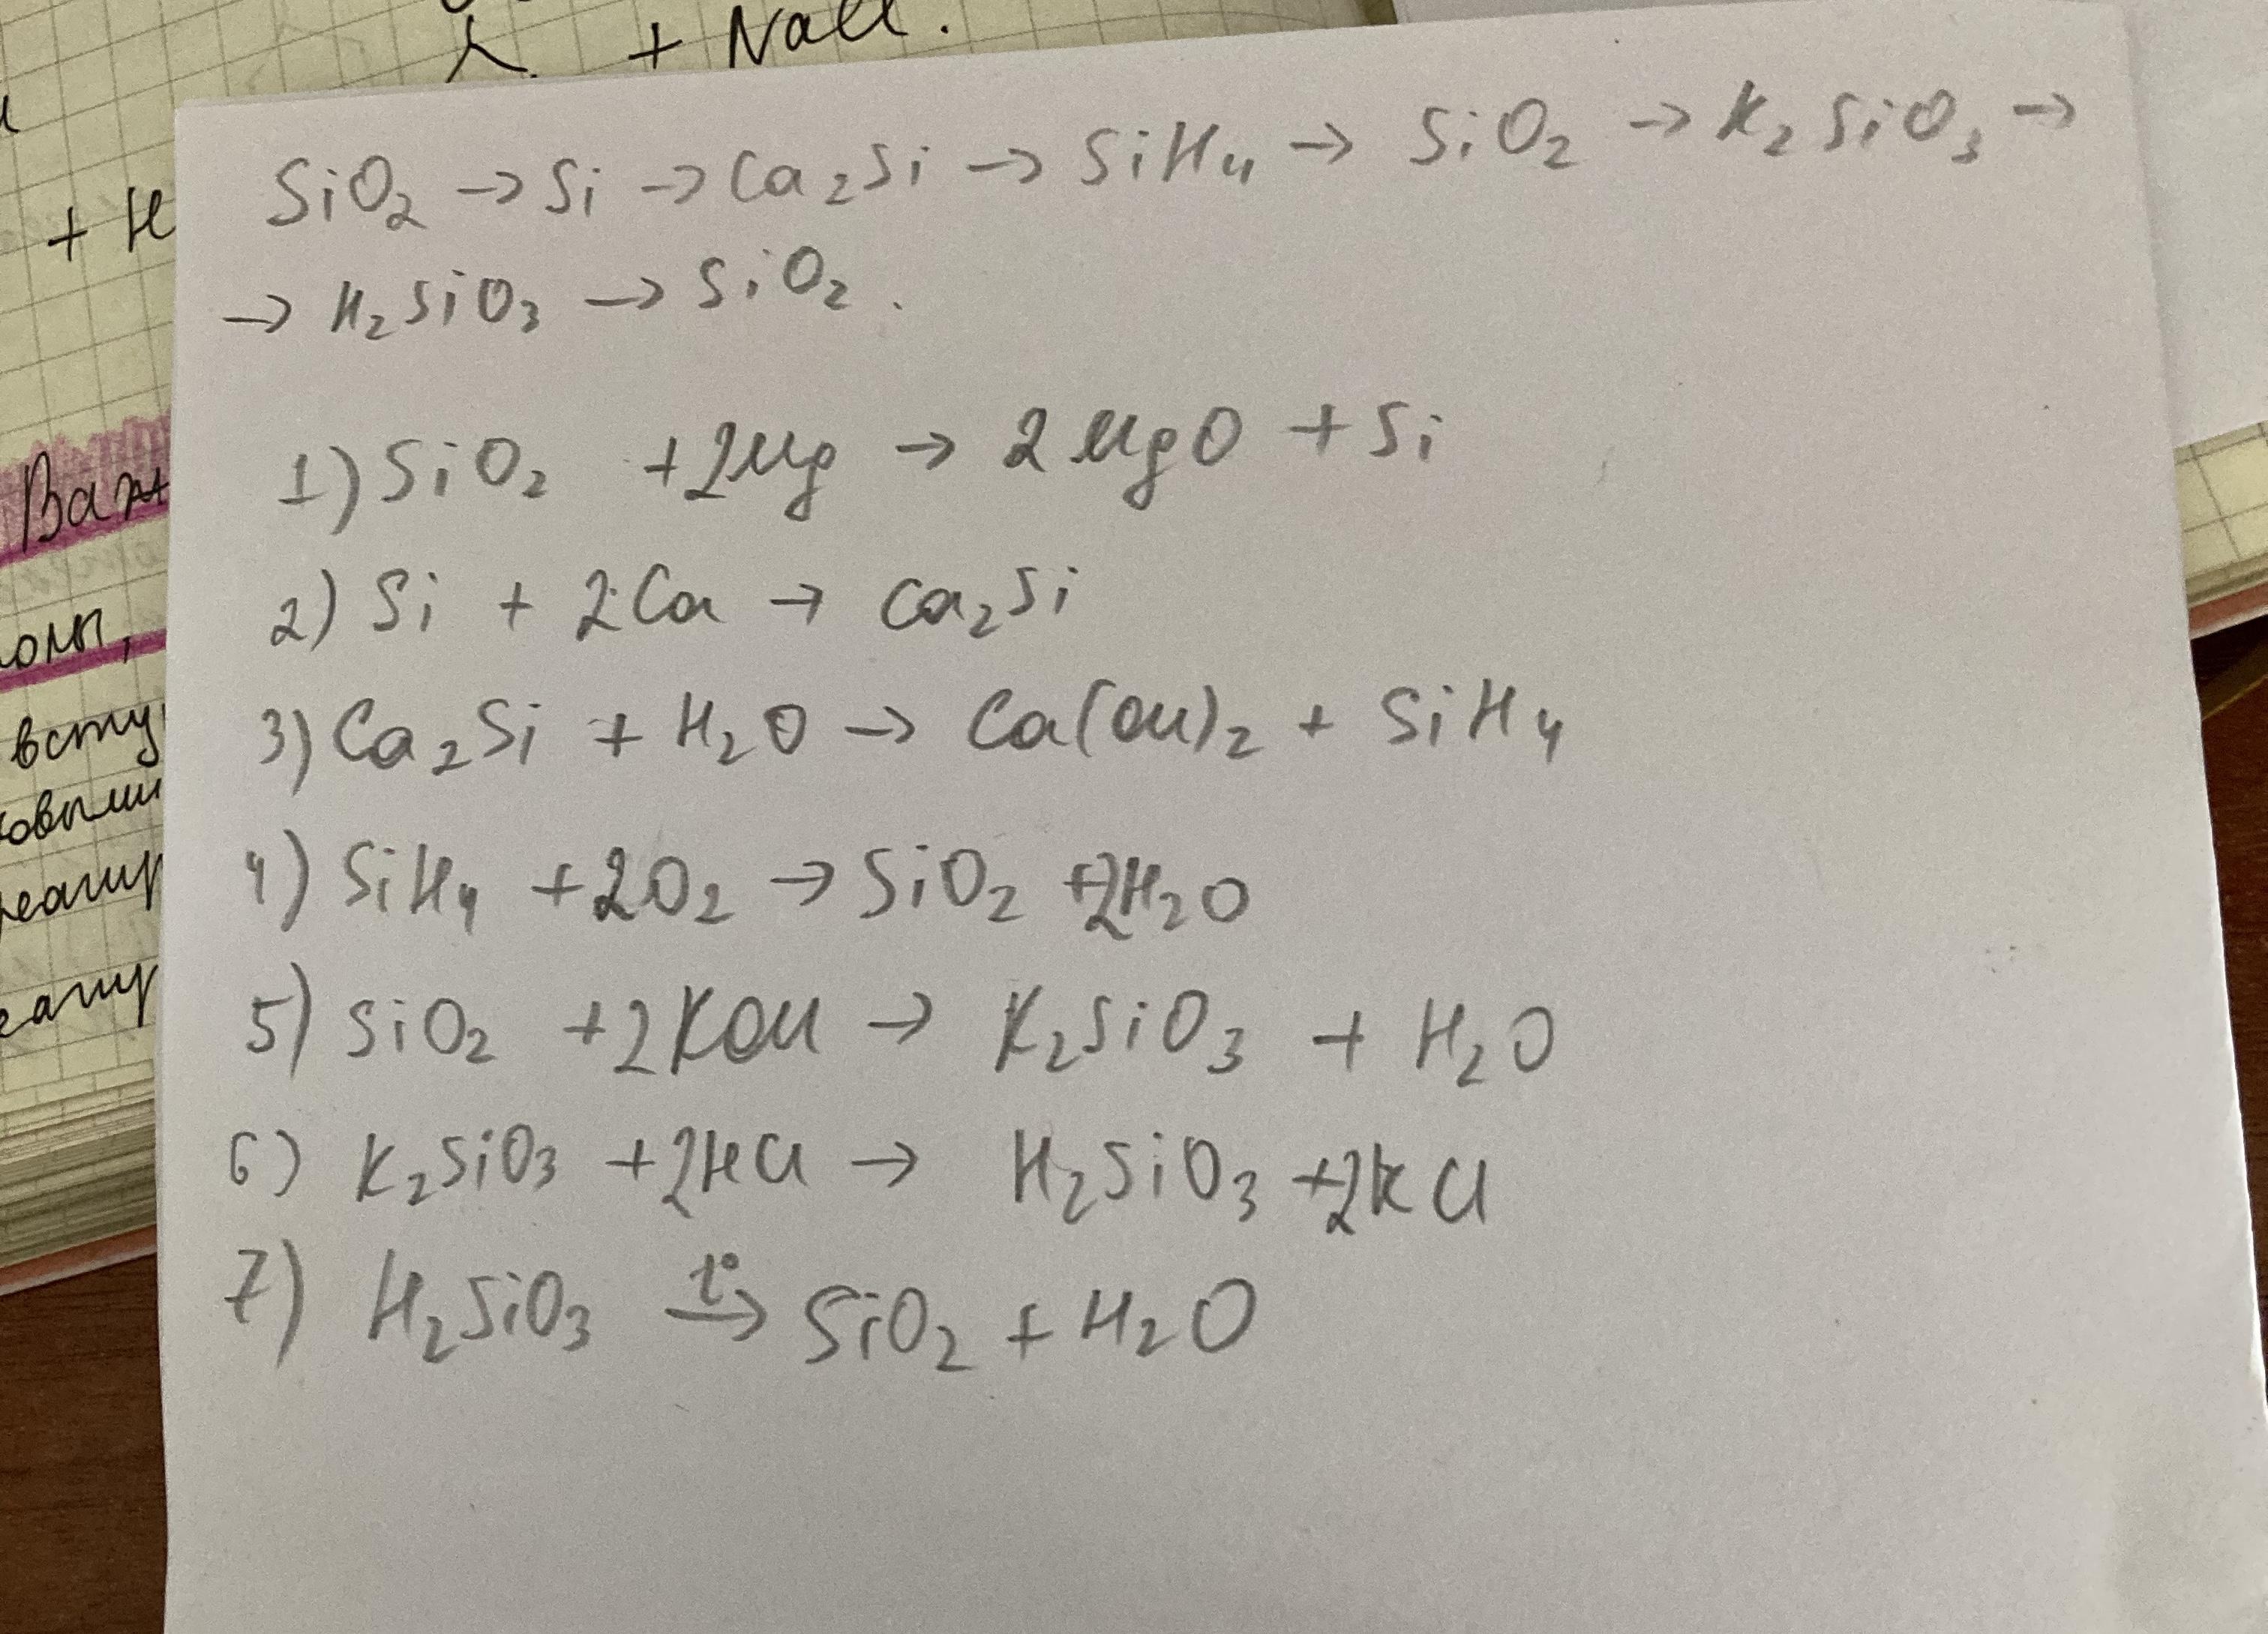 + NaCl.
+ H
SiO₂ → Si → Ca₂Si → SiH₄ → SiO₂ → K₂SiO₃ →
→ H₂SiO₃ → SiO₂.
1) SiO₂ + 2Mg → 2MgO + Si
2) Si + 2Ca → Ca₂Si
3) Ca₂Si + H₂O → Ca(OH)₂ + SiH₄
4) SiH₄ + 2O₂ → SiO₂ + 2H₂O
5) SiO₂ + 2KOH → K₂SiO₃ + H₂O
6) K₂SiO₃ + 2HCl → H₂SiO₃ + 2KCl
7) H₂SiO₃ t° → SiO₂ + H₂O